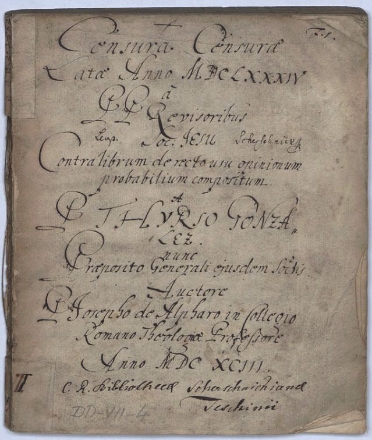 Censura Censuræ
Latæ Anno MDCLXXXIV
à
PP Revisoribus
Soc. JESU
Contra librum de recto usu opinionum
probabilium compositum
A
P THYRSO GONZA-
LEZ.
nunc
Præposito Generali ejusdem Soctis
Auctore
P Josepho de Alpharo in Collegio
Romano Theologiæ Professore
Anno MDCXCIII.
II
C. R. Bibliothecæ Scherschnickiand
Teschinii
DD-VII-4